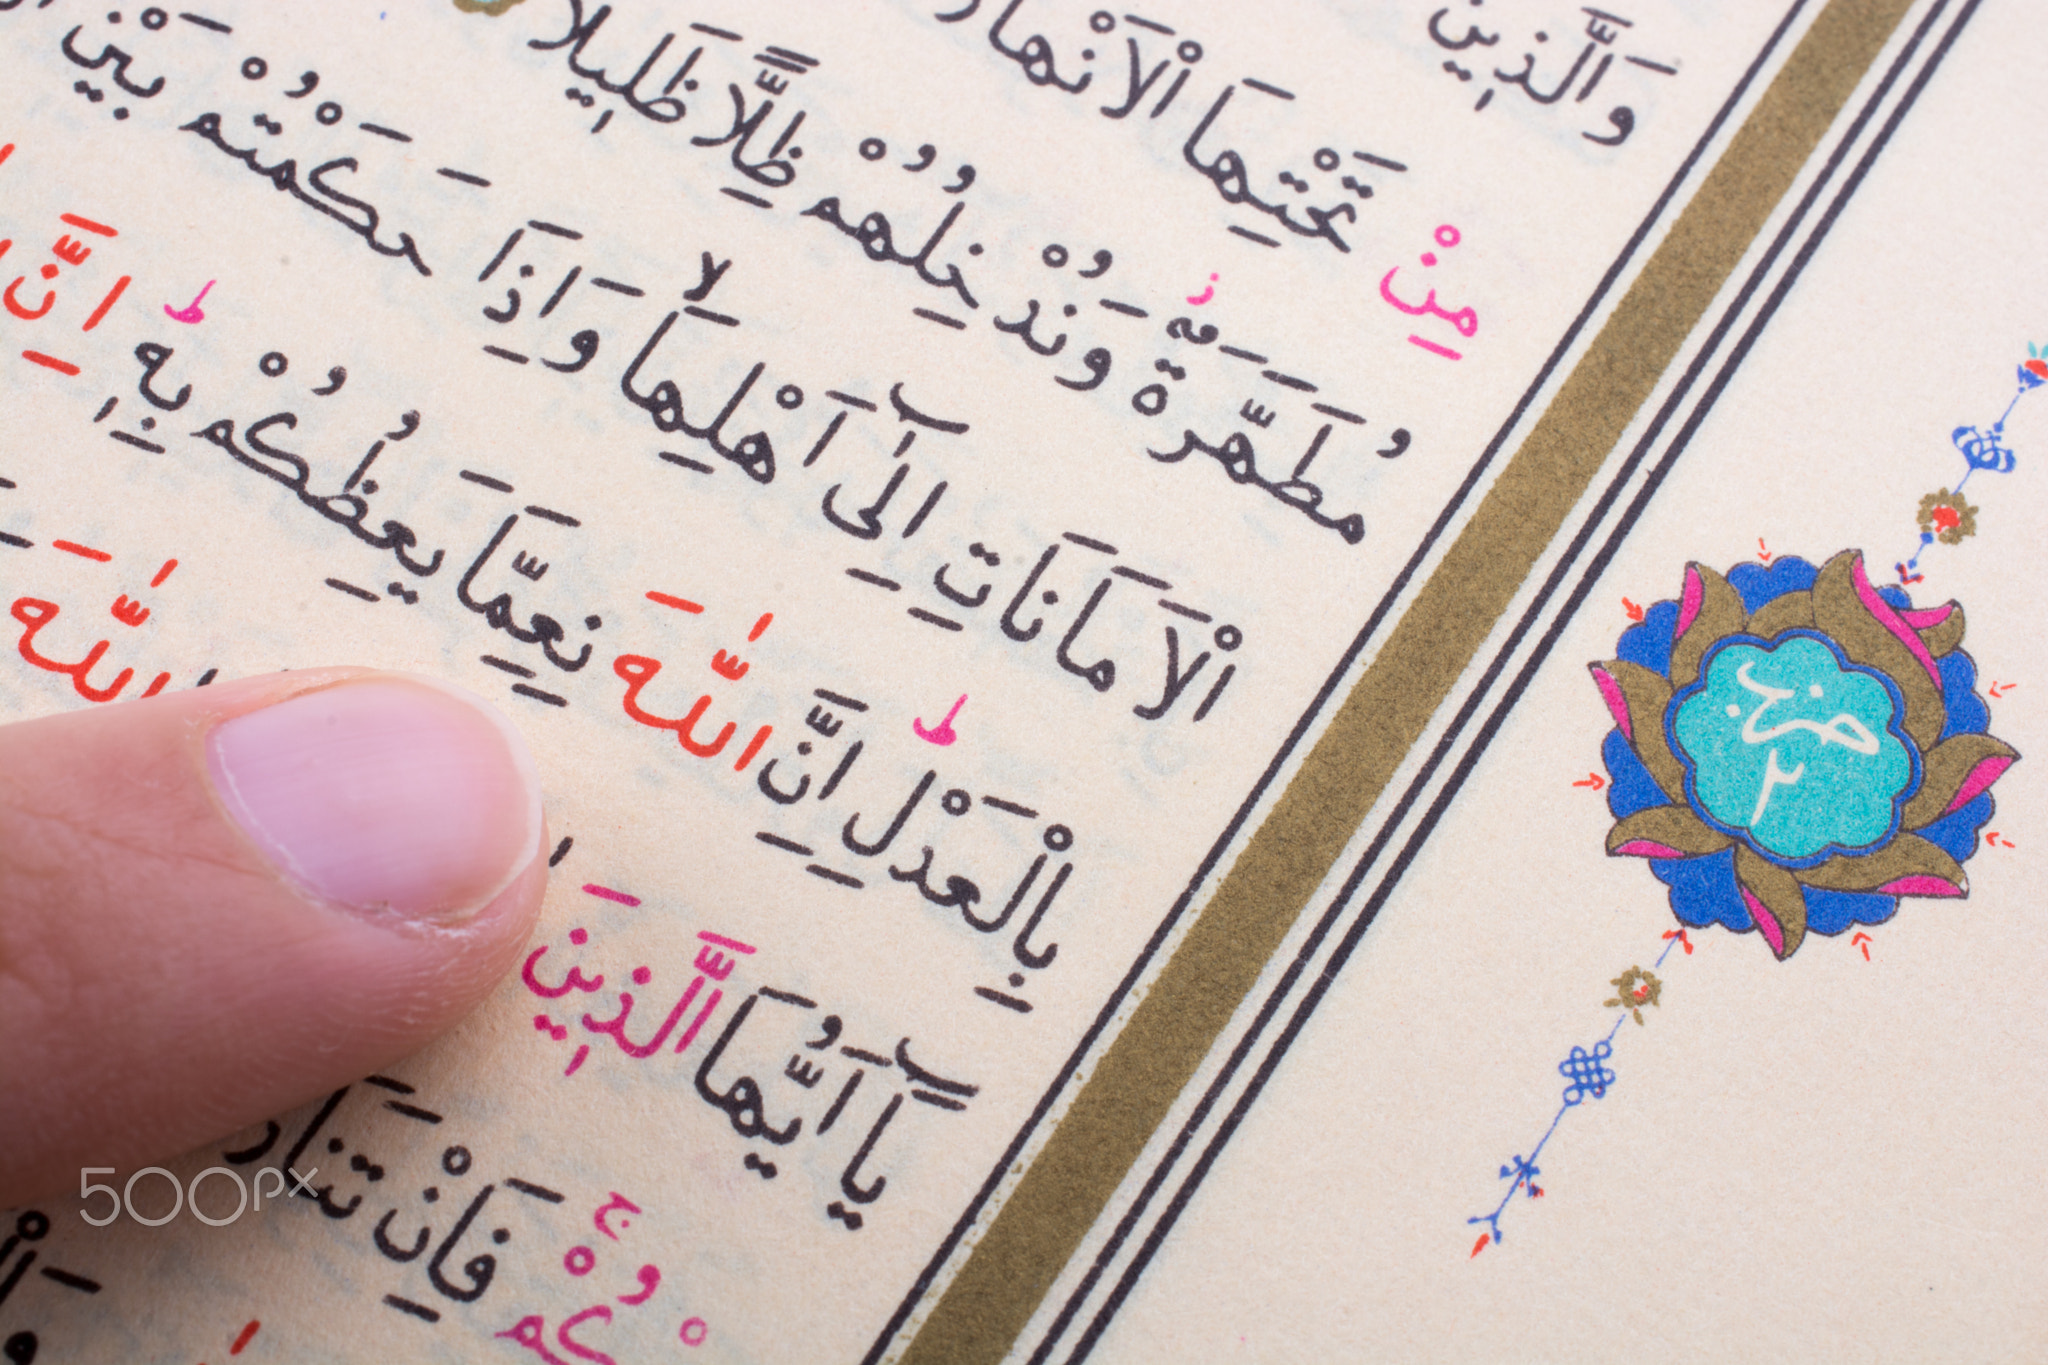 وَالَّذِينَ
مِنْ تَحْتِهَا الْاَنْهَارُ
مُطَهَّرَةٌ وَنُدْخِلُهُمْ ظِلًّا ظَلِيلًا
الْاَمَانَاتِ اِلٰٓى اَهْلِهَا وَاِذَا حَكَمْتُمْ بَيْنَ
بِالْعَدْلِ اِنَّ اللّٰهَ نِعِمَّا يَعِظُكُمْ بِهٖ اِنَّ
يَٓا اَيُّهَا الَّذِينَ اللّٰهَ
كُمْ فَاِنْ
حزب
٢
500px